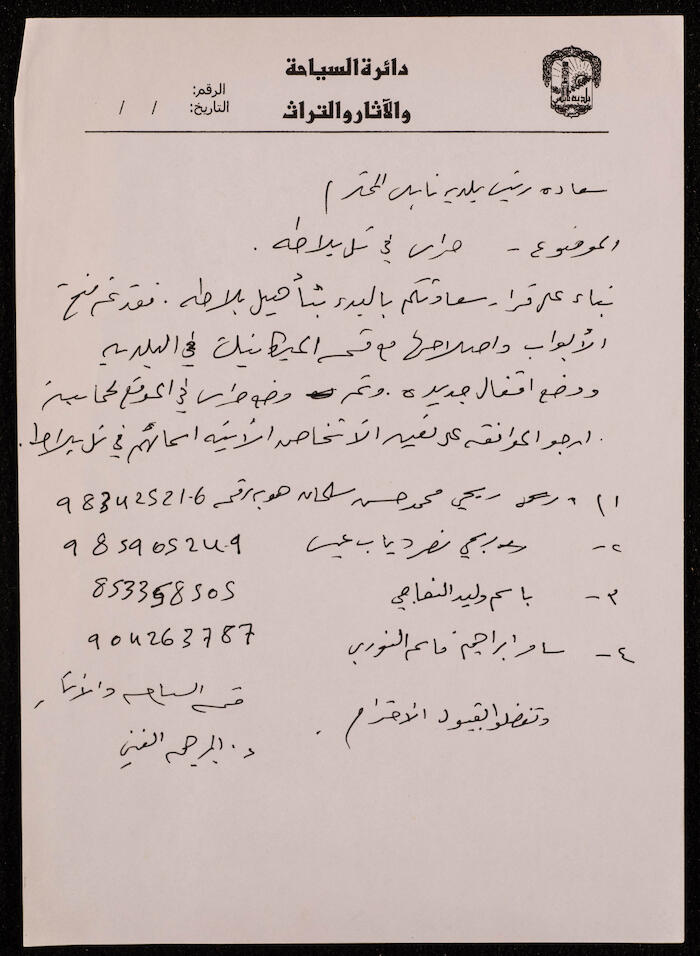 دائرة السياحة
والآثار والتراث
الرقم:
التاريخ: / /
بلدية نابلس
سعاده رئيس بلديه نابلس المحترم
الموضوع - حراس في تل بلاطه .
بناء على قرار سعادتكم بالبدء بتأهيل بلاطه . فقد تم فتح
الأبواب واصلاحها مع قسم الميكانيك في البلديه
ووضع اقفال جديده . وتم وضع حراس في الموقع لحمايته
. ارجو الموافقه على تعيين الاشخاص الآتيه اسمائهم في تل بلاطه .
١) ربحي محمد حسن سلمان هويه رقم
٢- نصر دياب عيسى 985905249
٣- باسم وليد 853358505
٤- سامر ابراهيم قاسم النوري 904263787
وتفضلوا بقبول الاحترام .
قسم السياحه والآثار
د.